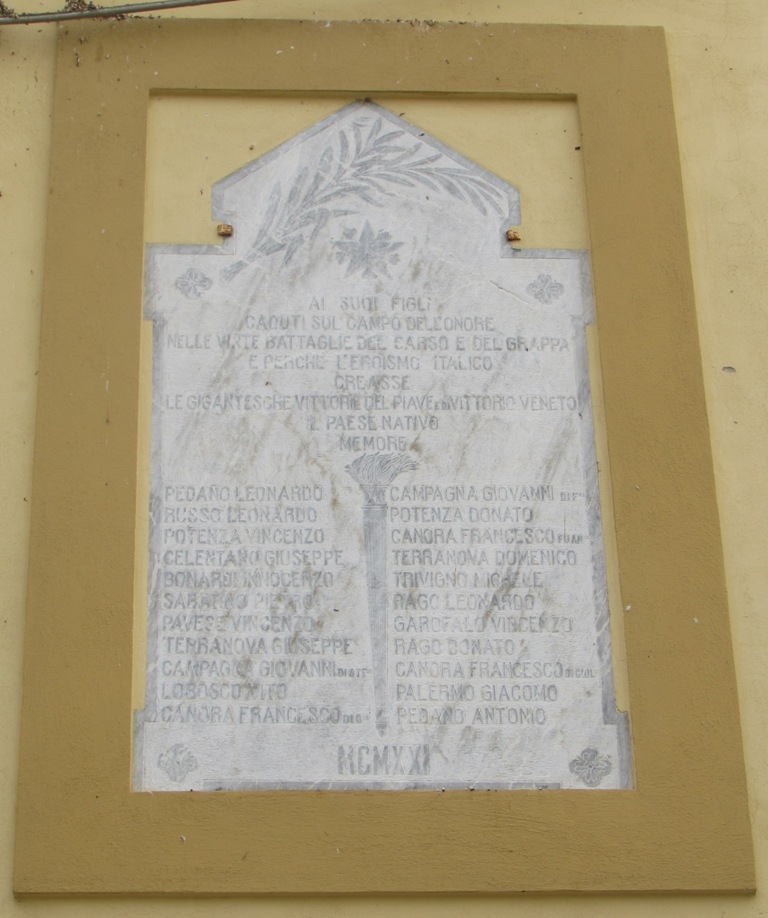 AI SUOI FIGLI
CADUTI SUL CAMPO DELL'ONORE
NELLE VINTE BATTAGLIE DEL CARSO E DEL GRAPPA
E PERCHÈ L'EROISMO ITALICO
CREASSE
LE GIGANTESCHE VITTORIE DEL PIAVE E DI VITTORIO VENETO
IL PAESE NATIVO
MEMORE
PEDANO LEONARDO
RUSSO LEONARDO
POTENZA VINCENZO
CELENTANO GIUSEPPE
BONARDI INNOCENZO
SABATINO PIETRO
PAVESE VINCENZO
TERRANOVA GIUSEPPE
CAMPAGNA GIOVANNI DI
LOBOSCO VITO
CANORA FRANCESCO DI G.
CAMPAGNA GIOVANNI DI
POTENZA DONATO
CANORA FRANCESCO FU
TERRANOVA DOMENICO
TRIVIGNO MICHELE
RAGO LEONARDO
GAROFALO VINCENZO
RAGO DONATO
CANORA FRANCESCO DI
PALERMO GIACOMO
PEDANO ANTONIO
MCMXXI